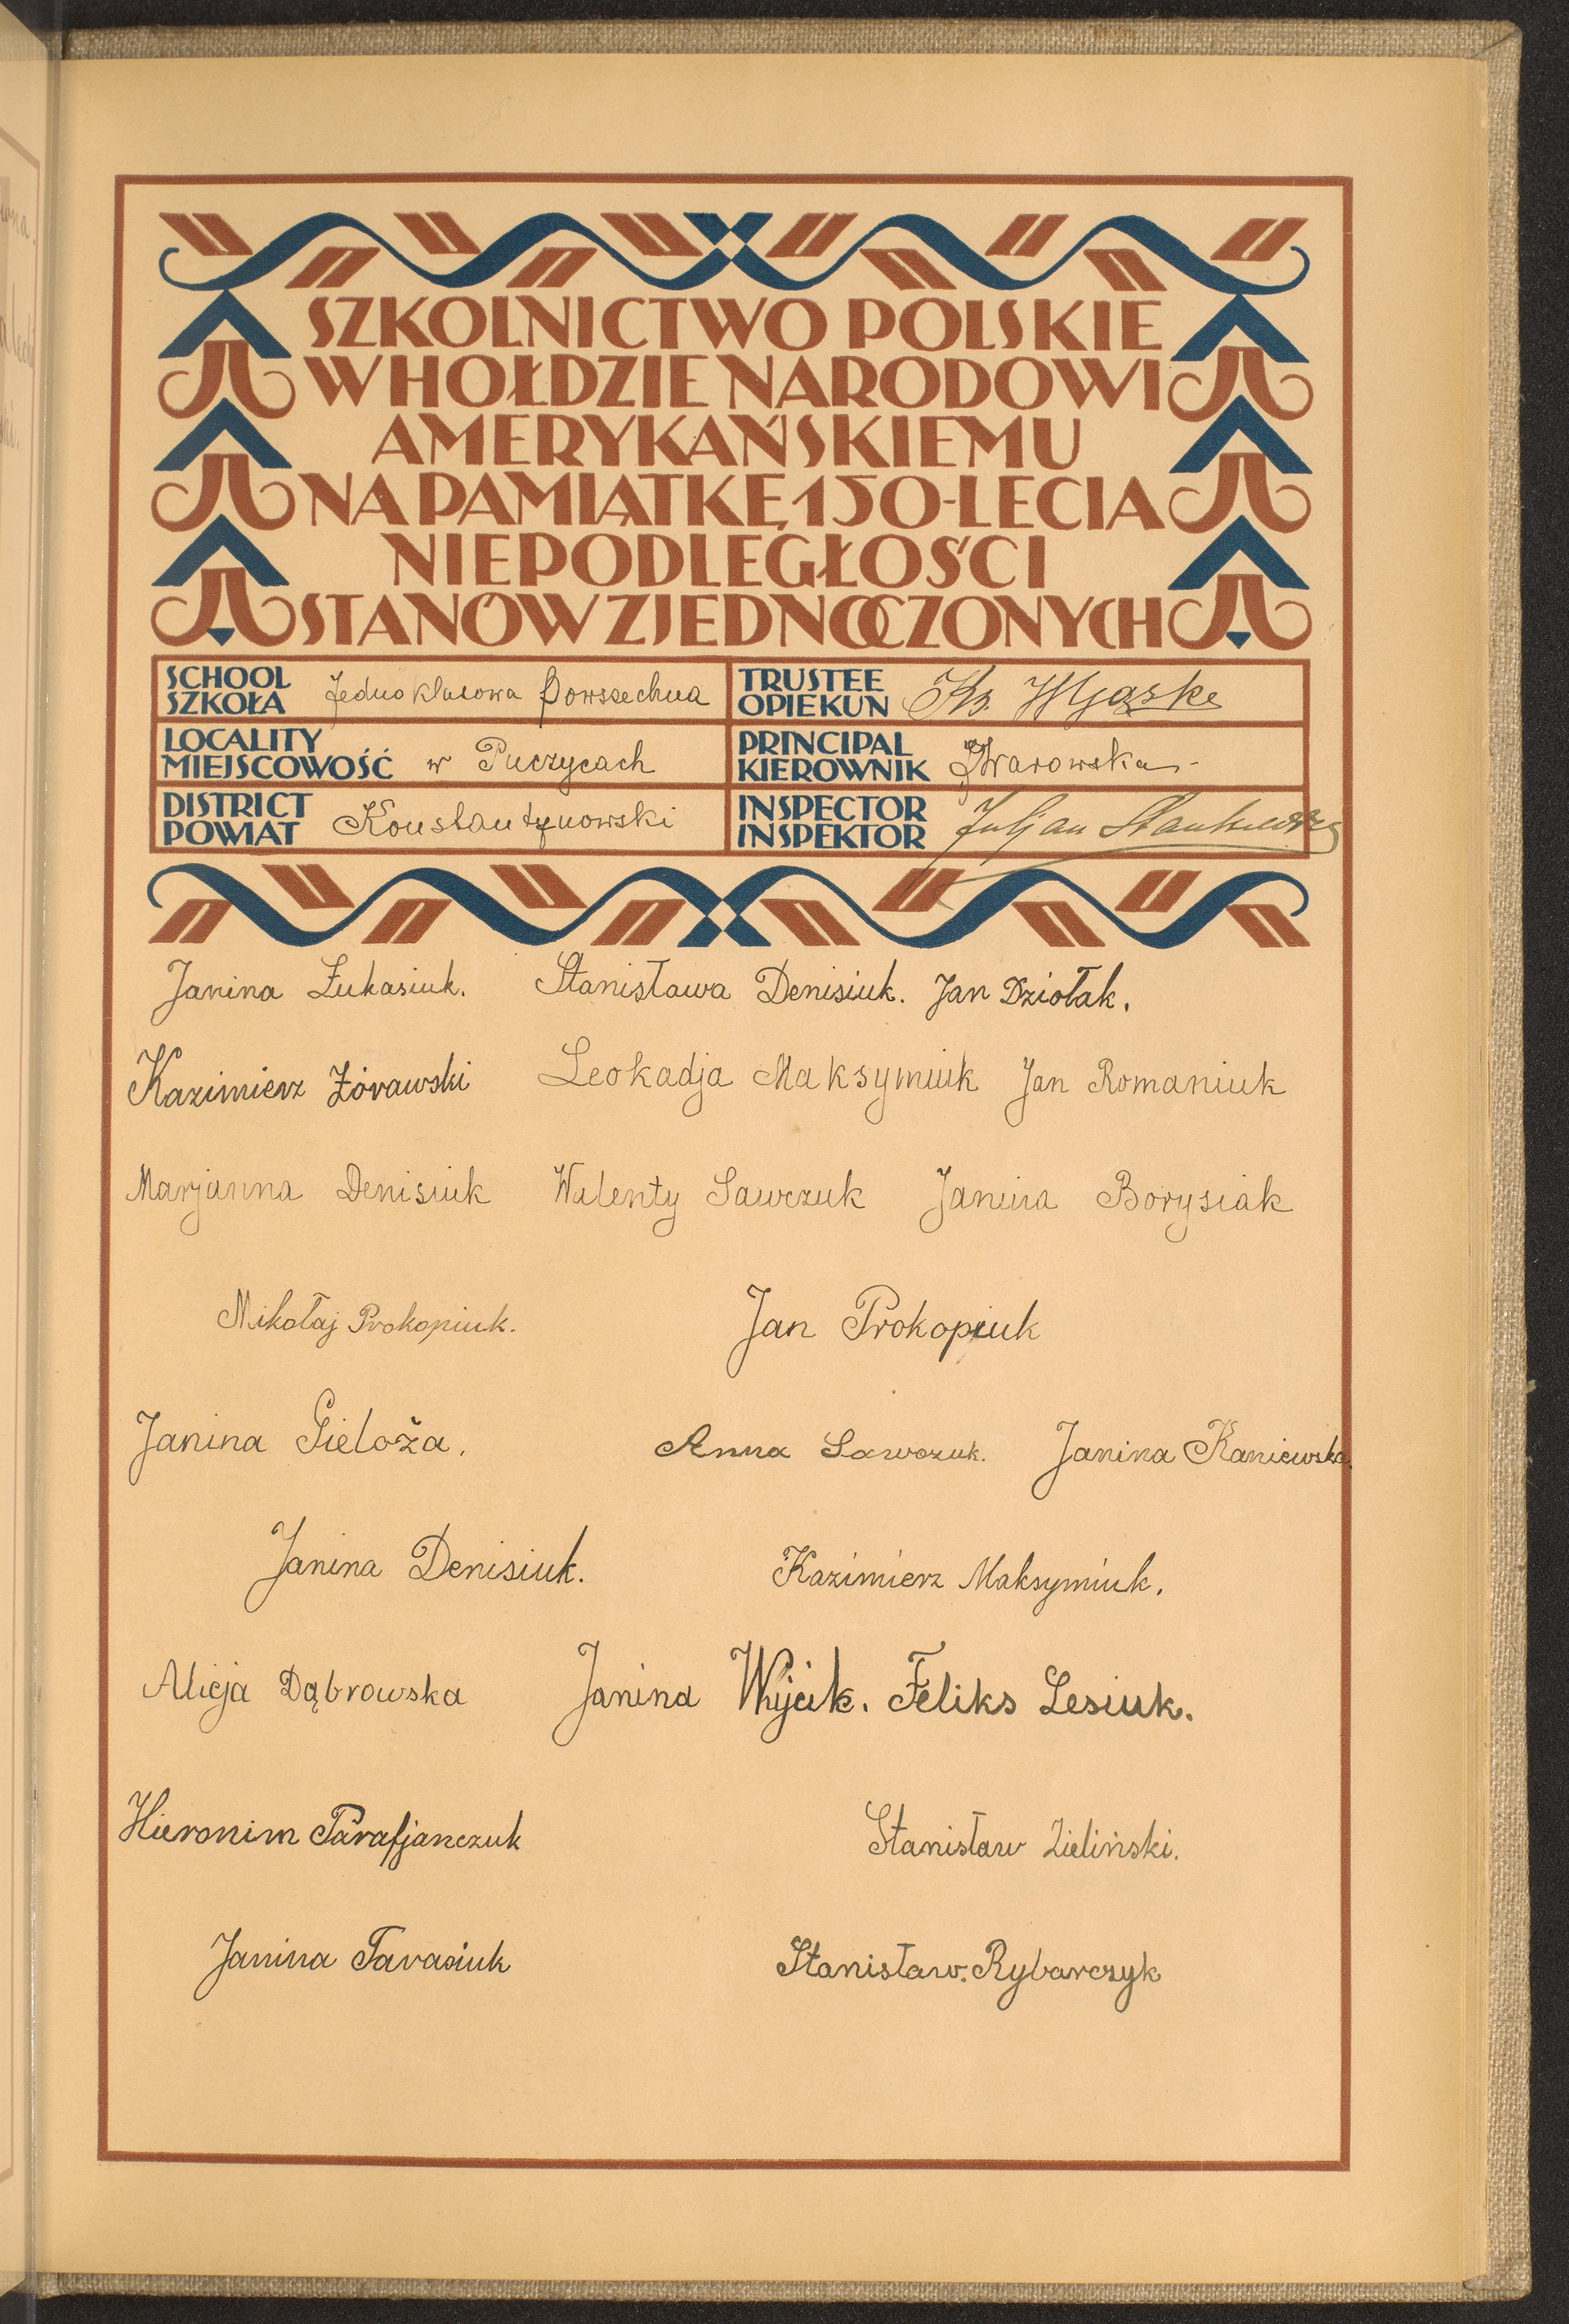 SZKOLNICTWO POLSKIE
W HOŁDZIE NARODOWI
AMERYKAŃSKIEMU
NA PAMIĄTKĘ 150-LECIA
NIEPODLEGŁOŚCI
STANÓW ZJEDNOCZONYCH
SCHOOL
SZKOŁA Jednoklasowa Powszechna
TRUSTEE
OPIEKUN Ks.
LOCALITY
MIEJSCOWOŚĆ w Puczycach
PRINCIPAL
KIEROWNIK
DISTRICT
POWIAT Konstantynowski
INSPECTOR
INSPEKTOR Juljan
Janina Łukasiuk. Stanisława Denisiuk. Jan Dziołak.
Kazimierz Żórawski Leokadja Maksymiuk Jan Romaniuk
Marjanna Denisiuk Walenty Sawczuk Janina Borysiak
Mikołaj Prokopiuk. Jan Prokopiuk
Janina Gieloża. Anna Sawczuk. Janina Kaniewska.
Janina Denisiuk. Kazimierz Maksymiuk.
Alicja Dąbrowska Janina Wójcik. Feliks Lesiuk.
Hieronim Parafjanczuk Stanisław Zieliński.
Janina Tarasiuk Stanisław. Rybarczyk